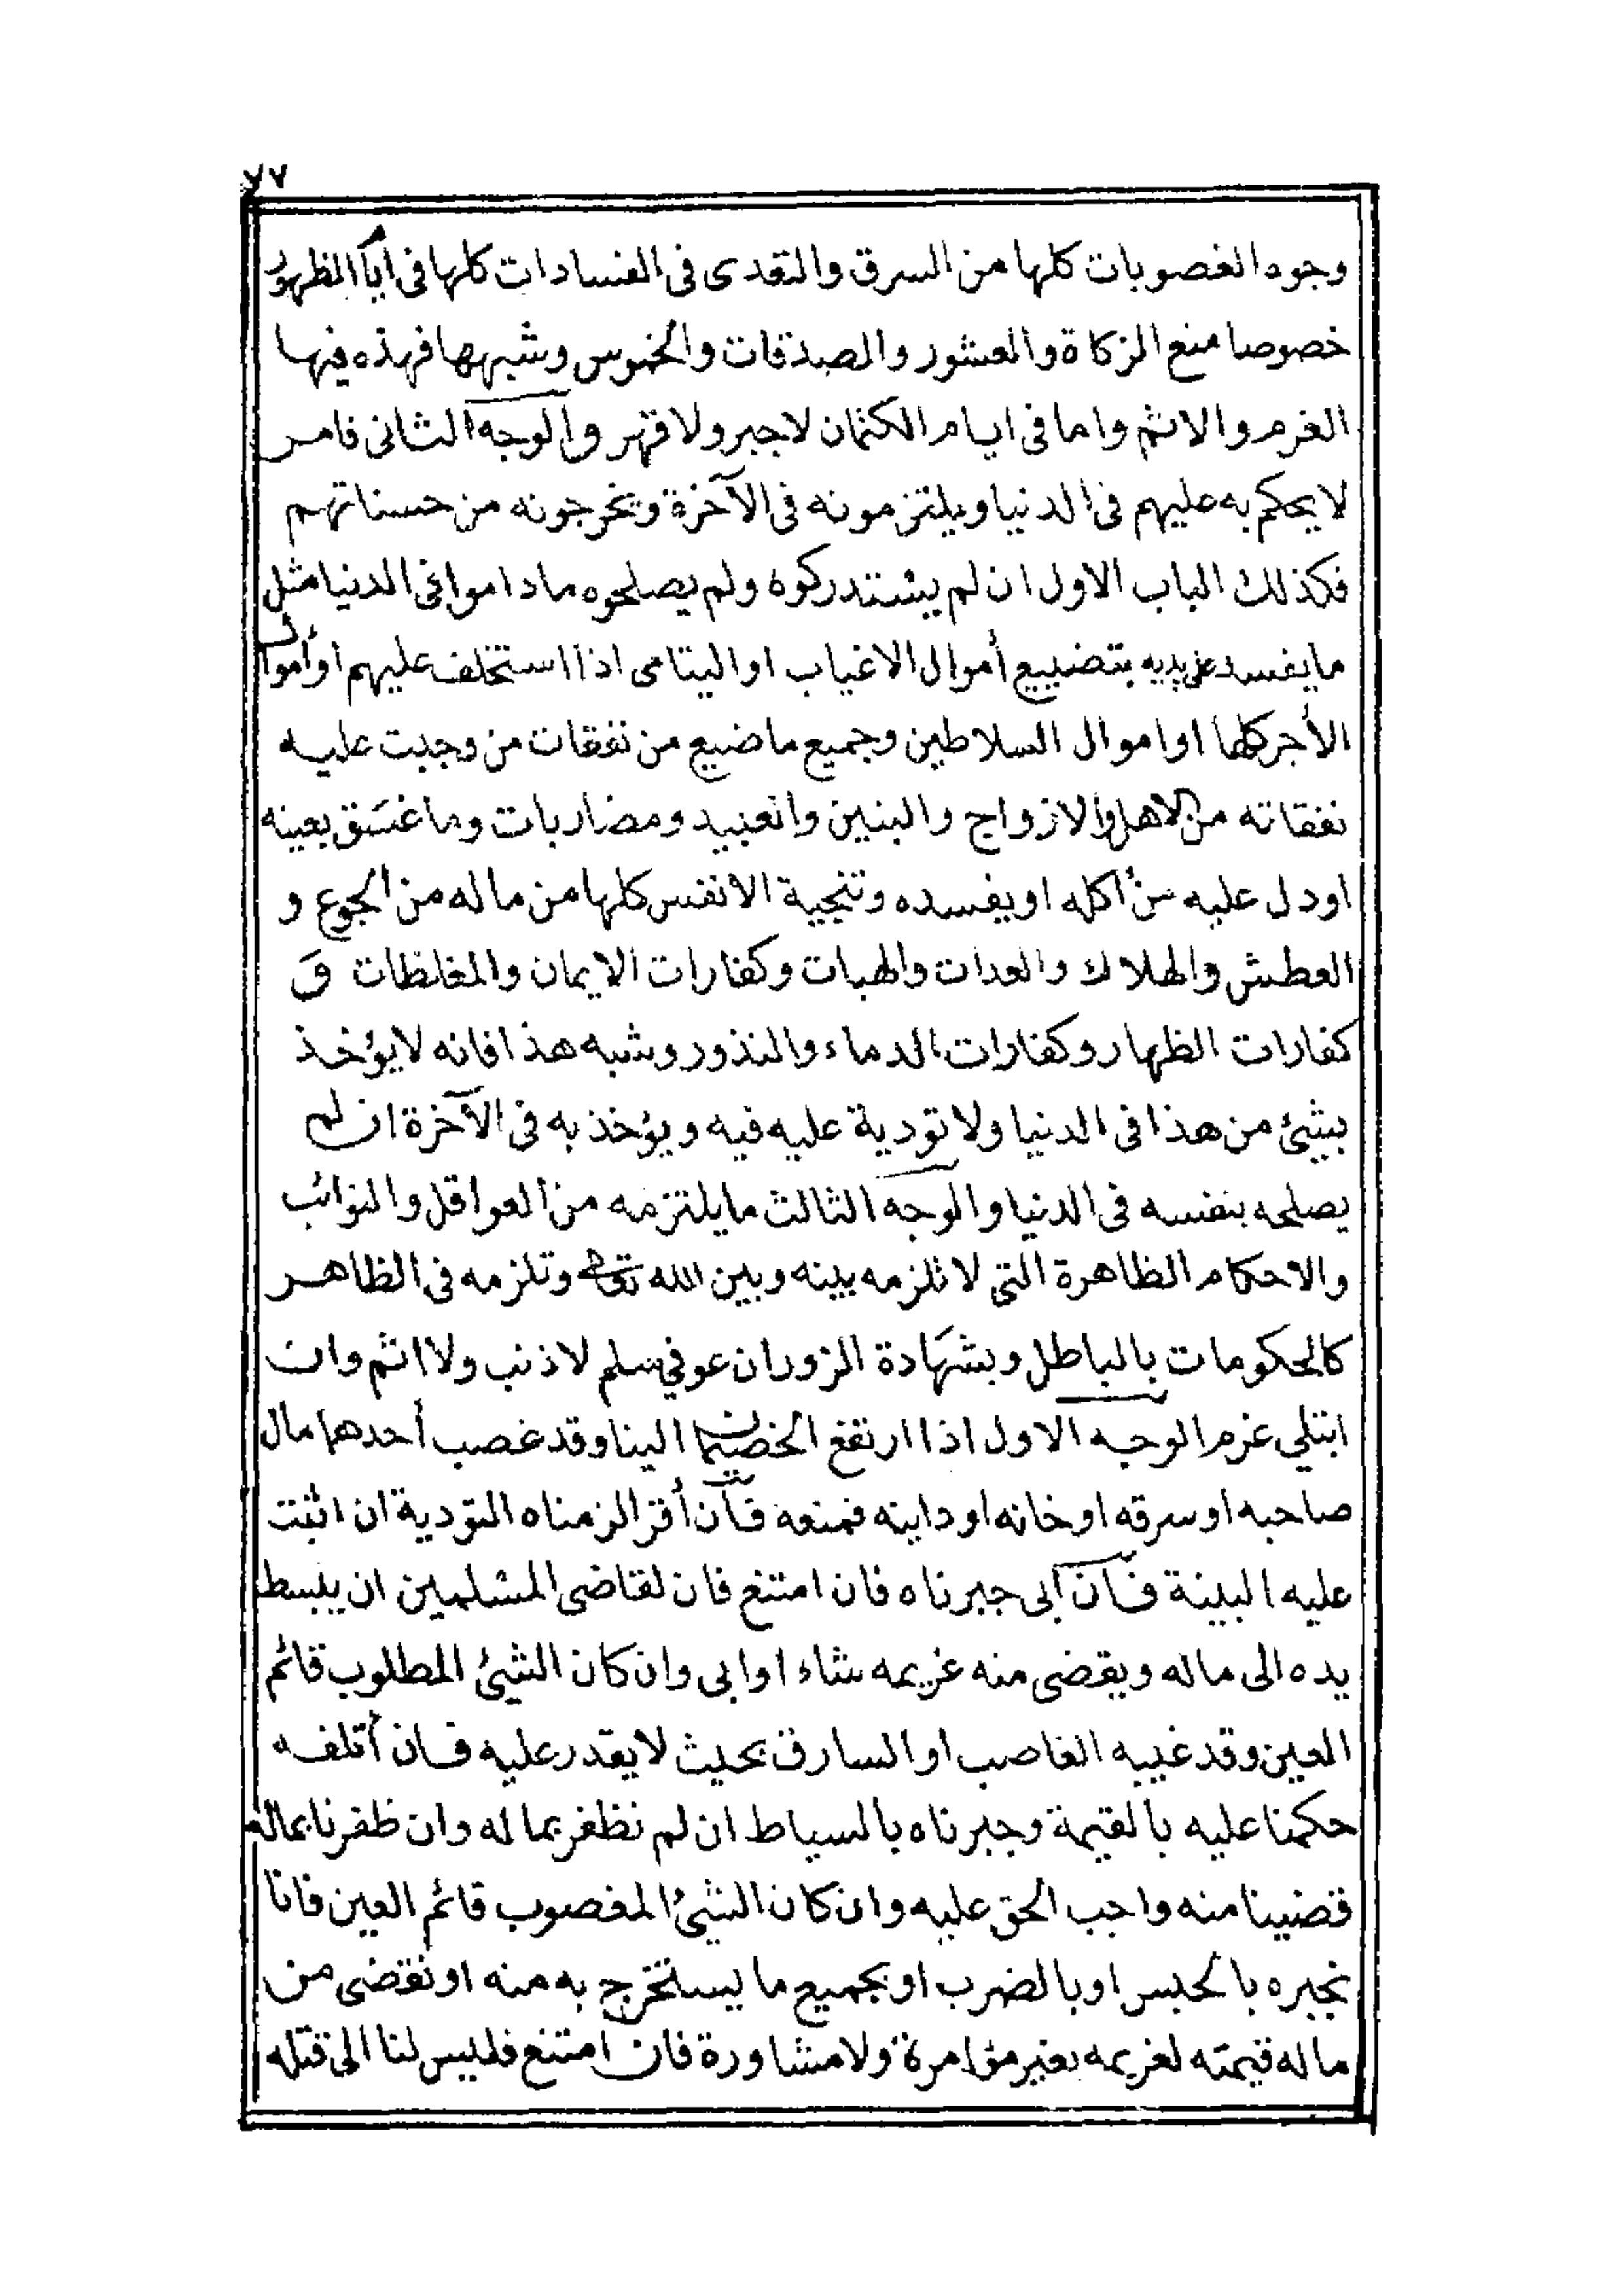 ٧٧
وجوه الغصوبات كلها من السرق والتعدى فى الفسادات كلها فى أيام الظهور
خصوصا منع الزكاة والعشور والصدقات والخموس وشبهها فهذه فيها
الغرم والاثم واما فى ايام الكتمان لا جبر ولا قهر والوجه الثانى فامر
لا يحكم به عليهم فى الدنيا ويلتزمونه فى الآخرة ويخرجونه من حسناتهم
فكذلك الباب الاول ان لم يستدركوه ولم يصلحوه ماداموا فى الدنيا مثل
ما يفسد على يديه بتضييع أموال الاغياب او اليتامى اذا استخلف عليهم او أموال
الأجر كلها او اموال السلاطين وجميع ما ضيع من نفقات من وجبت عليه
نفقاته من الاهل والازواج والبنين والعبيد ومضاربات وما غسق بعينه
اودل عليه من أكله او يفسده وتنجية الانفس كلها من ماله من الجوع و
العطش والهلاك والعدات والهبات وكفارات الايمان والمغلظات وَ
كفارات الظهار وكفارات الدماء والنذور وشبه هذا فانه لا يؤخذ
بشئ من هذا فى الدنيا ولا تودية عليه فيه ويؤخذ به فى الآخرة ان لم
يصلحه بنفسه فى الدنيا والوجه الثالث ما يلتزمه من العواقل والنوائب
والاحكام الظاهرة التى لا تلزمه بينه وبين الله تعالى وتلزمه فى الظاهر
كالحكومات بالباطل وبشهَادة الزور ان عوفي سلم لا ذنب ولا اثم وان
ابتلي غرم الوجه الاول اذا ارتفع الخصمان الينا وقد غصب أحدهما مال
صاحبه او سرقه او خانه او داينه فمنعه فان أقر الزمناه التودية ان اثبت
عليه البينة فان أبى جبرناه فان امتنع فان لقاضى المسلمين ان يبسط
يده الى ماله ويقضى منه غريمه شاء او ابى وان كان الشئ المطلوب قائم
العين وقد غيبه الغاصب او السارق بحيث لا يقدر عليه فان أتلفه
حكمنا عليه بالقيمة وجبرناه بالسياط ان لم نظفر بماله وان ظفرنا بماله
قضينا منه واجب الحق عليه وان كان الشئ المغصوب قائم العين فانا
نجبره بالحبس او بالضرب او بجميع ما يستخرج به منه او نقضى من
ماله قيمته لغريمه بغير مؤامرة ولا مشاورة فان امتنع فليس لنا الى قتله